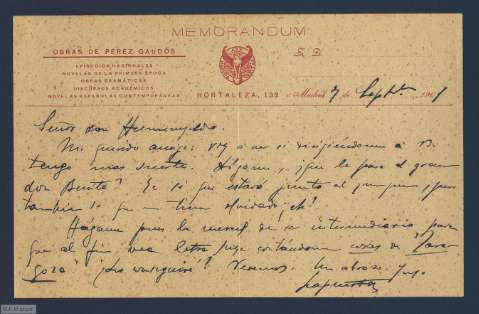 MEMORANDUM
OBRAS DE PÉREZ GALDÓS
EPISODIOS NACIONALES
NOVELAS DE LA PRIMERA ÉPOCA
OBRAS DRAMÁTICAS
DISCURSOS ACADÉMICOS
NOVELAS ESPAÑOLAS CONTEMPORÁNEAS
S. D.
HORTALEZA, 132
Madrid 7 de Septbre 190
Señor don Hermenegildo.
Mi querido amigo: voy a ver si dirigiéndome a V.
tengo mas suerte. Hágame, ¿que le pasa al gran
don Benito? Es que estará
también
Hágame pues la merced de ser intermediario para
que al fin vea letra suya contándome cosas de Zara
goza? ¿Lo conseguiré? Veremos. Un abrazo. Suyo